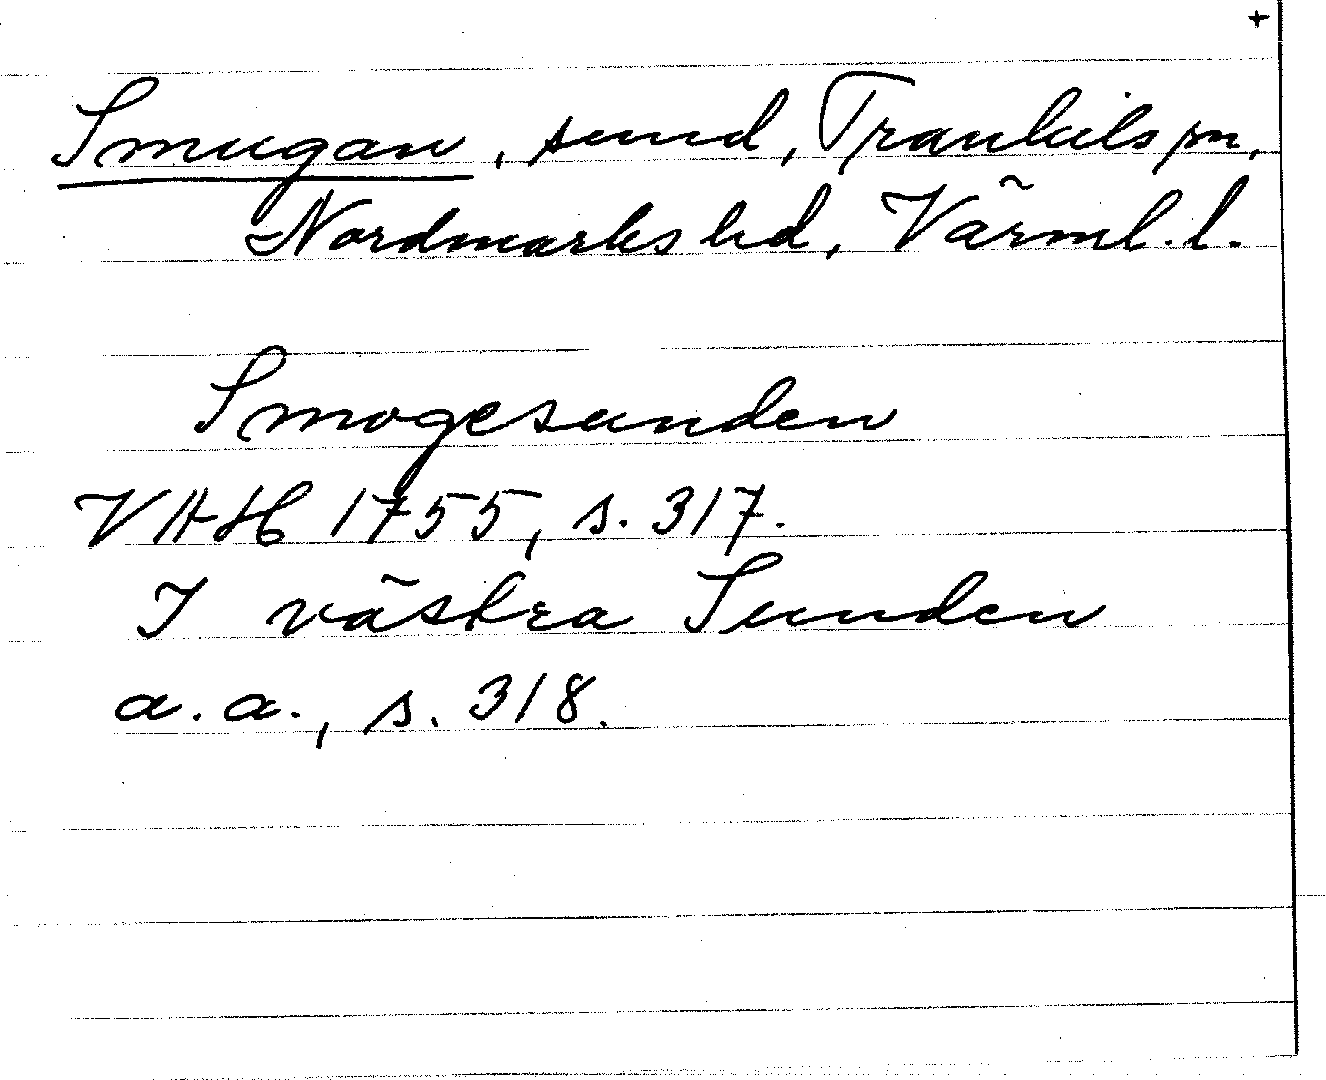 +
Smugan, sund, Trankils sn,
Nordmarks hd, Värml. l.
Smogesunden
VAH 1755, s. 317.
I västra Sunden
a. a., s. 318.